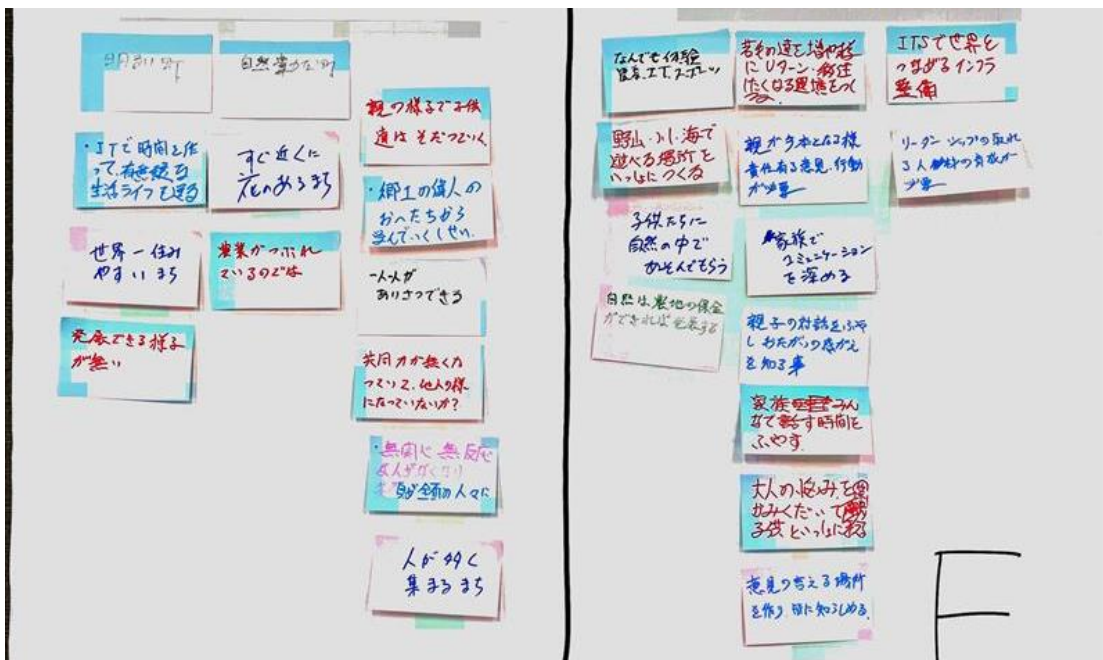 明るい町
自然豊かな町
・ITで時間を作
って、有意義な
生活ライフを送る
すぐ近くに
花のあるまち
世界一住み
やすいまち
農業がつぶれ
ているのでは
発展できる様子
が無い
親の様子で子供
達はそだっていく
・郷土の偉人の
一人一人が
あいさつできる
共同力が無くな
っていて、他人の様
になっていないか?
・無関心 無反応
人が多く
集まるまち
なんでも体験
若者の達を増やす様
にUターン・移住
したくなる環境をつく
ITSで世界と
つながるインフラ
整備
野山・川・海で
遊べる場所を
いっしょにつくる
親が手本となる様
責任有る意見、行動
が必要
リーダーシップの取れ
る人材の育成が
必要
子供たちに
自然の中で
あそんでもらう
家族で
コミュニケーション
を深める
自然は農地の保全
ができれば発展する
親子の対話をふや
しおたがいの考がえ
を知る事
家族みん
なで話す時間を
ふやす
大人の悩みを
かみくだいて
子供といっしょに
意見の言える場所
を作り
E